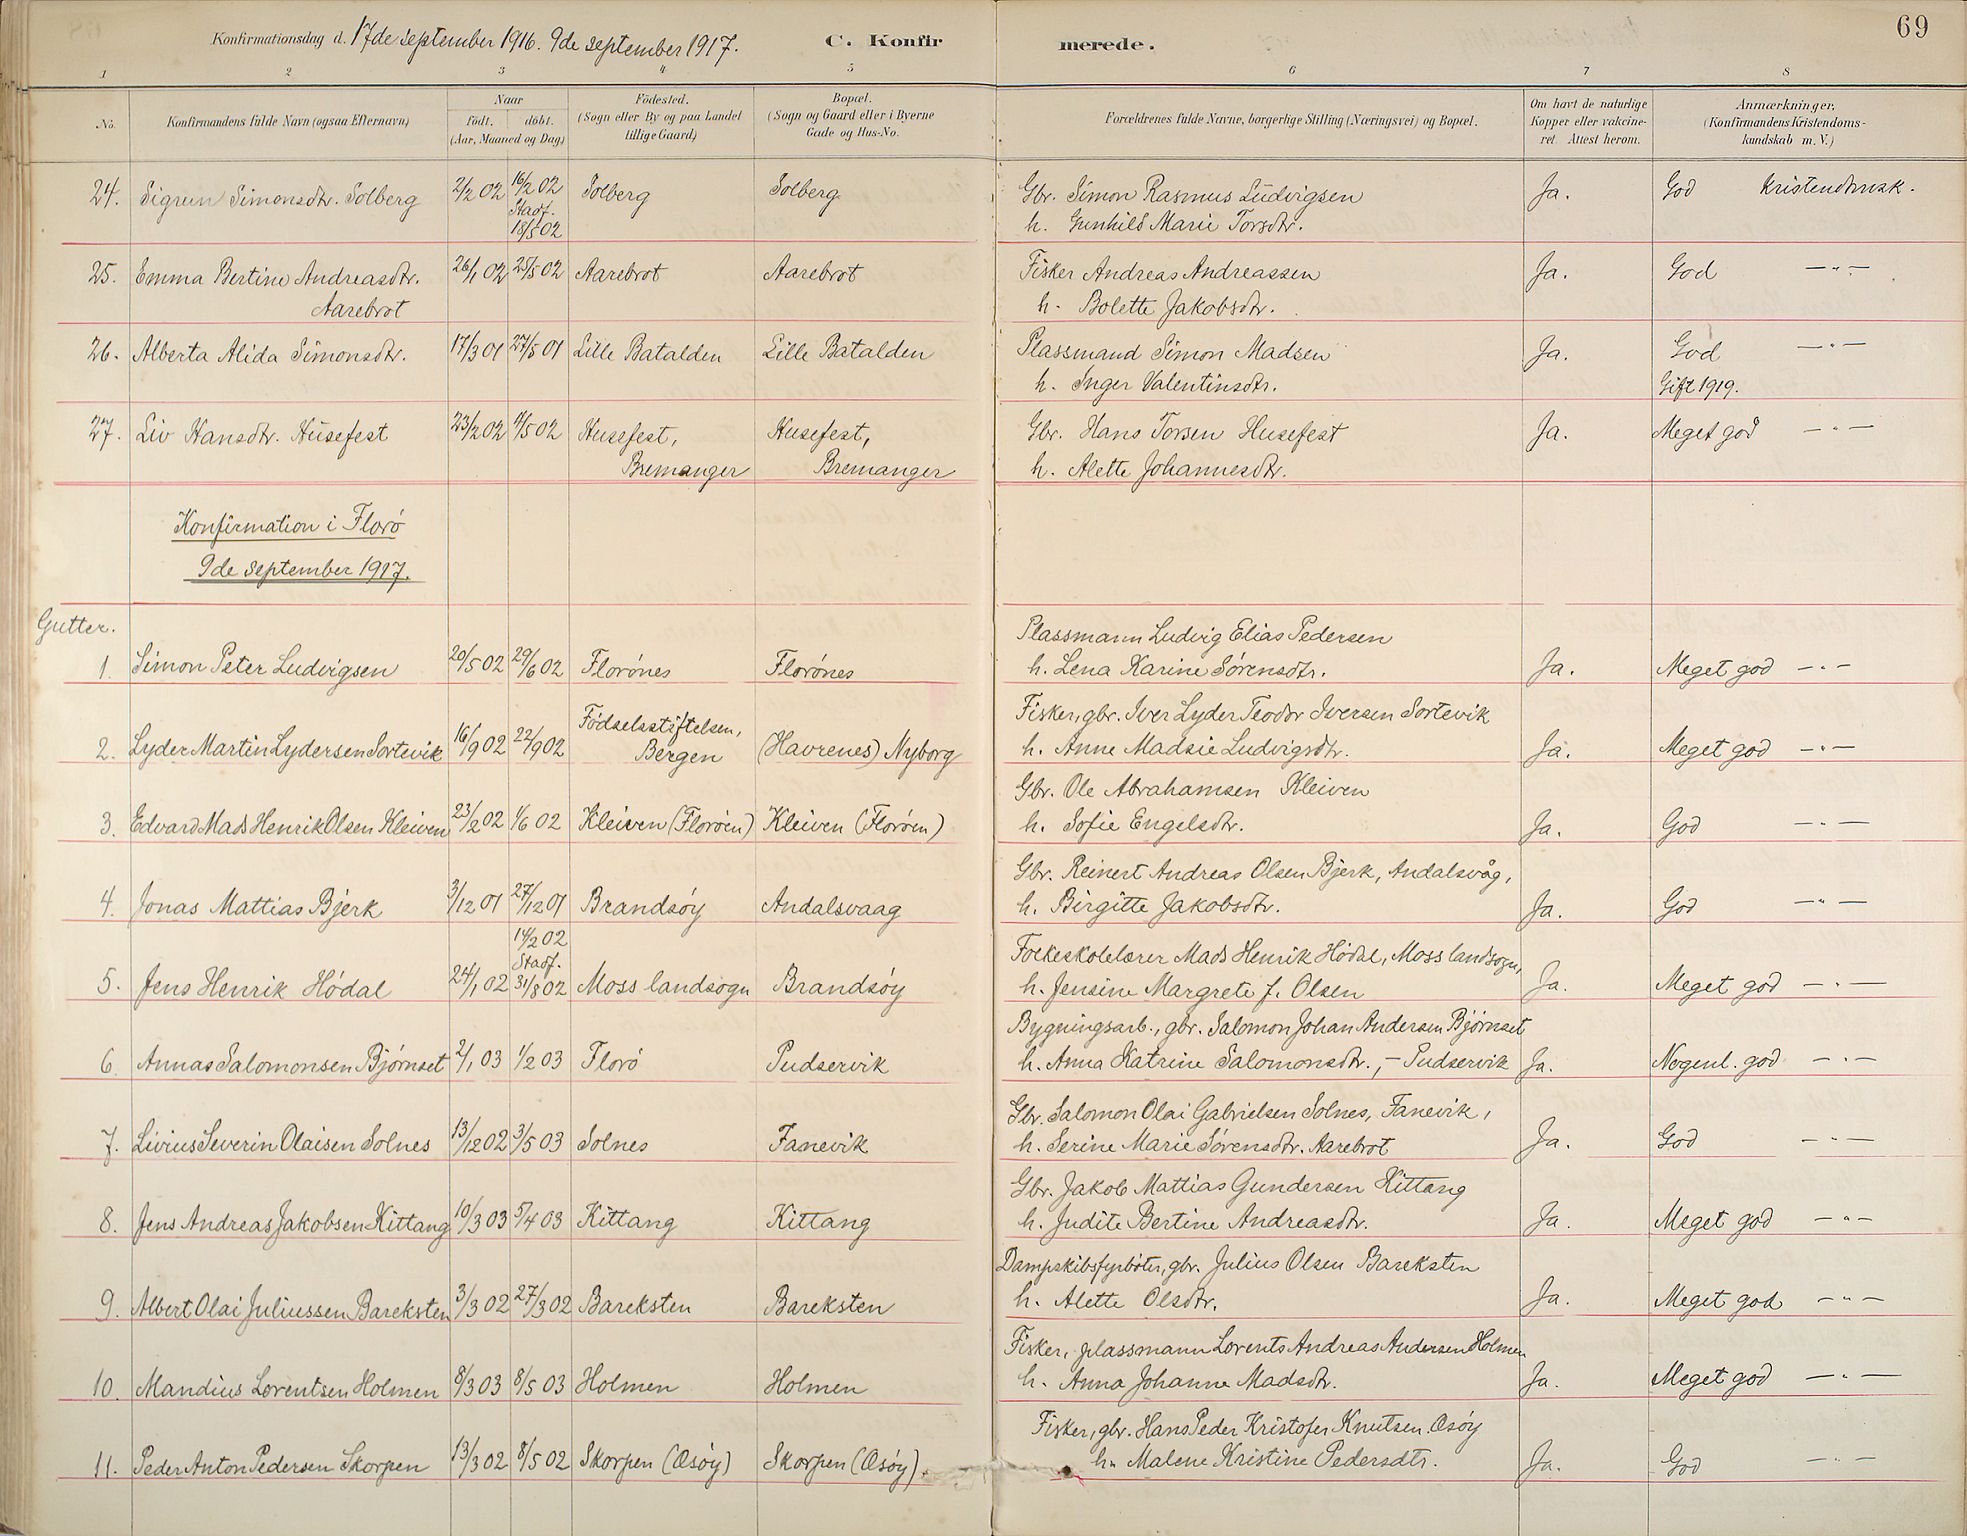 69
Konfirmationsdag d. 17de september 1916. 9de september 1917. C. Konfirmerede.
1 2 3 4 5 6 7 8
No. Konfirmandens fulde Navn (ogsaa Efternavn) Naar født. døbt. (Aar, Maaned og Dag) Fødested. (Sogn eller By og paa Landet tillige Gaard) Bopæl. (Sogn og Gaard eller i Byerne Gade og Hus-No. Forældrenes fulde Navne, borgerlige Stilling (Næringsvei) og Bopæl. Om havt de naturlige Kopper eller vakcineret. Attest herom. Anmærkninger, (Konfirmandens Kristendomskundskab m. V.)
24. Sigrun Simonsdtr. Solberg 2/2 02 16/2 02 Stadf. 18/5 02 Solberg Solberg Gbr. Simon Rasmus Ludvigsen Ja. God Kristendomsk.
h. Gunhild Marie Torsdtr.
25. Emma Bertine Andreasdtr. 26/1 02 25/5 02 Aarebrot Aarebrot Fisker Andreas Andreassen Ja. God — " —
Aarebrot h. Bolette Jakobsdtr.
26. Alberta Alida Simonsdtr. 17/3 01 27/5 01 Lille Batalden Lille Batalden Plassmand Simon Madsen Ja. God — " —
h. Inger Valentinsdtr. Gift 1919.
27. Liv Hansdtr. Husefest 23/2 02 11/5 02 Husefest, Husefest, Gbr. Hans Torsen Husefest Ja. Meget god — " —
Bremanger Bremanger h. Alette Johannesdtr.
Konfirmation i Florø
9de september 1917.
Gutter. Plassmann Ludvig Elias Pedersen
1. Simon Peter Ludvigsen 20/5 02 29/6 02 Florønes Florønes h. Lena Karine Sørensdtr. Ja. Meget god — " —
Fødselsstiftelsen, Fisker, gbr. Iver Lyder Teodor Iversen Sortevik
2. Lyder Martin Lydersen Sortevik 16/9 02 22/9 02 Bergen (Havrenes) Nyborg h. Anne Madsie Ludvigsdtr. Ja. Meget god — " —
Gbr. Ole Abrahamsen Kleiven
3. Edvard Mads Henrik Olsen Kleiven 23/2 02 1/6 02 Kleiven (Florøen) Kleiven (Florøen) h. Sofie Engelsdtr. Ja. God — " —
Gbr. Reinert Andreas Olsen Bjerk, Andalsvåg,
4. Jonas Mattias Bjerk 3/12 01 27/12 01 Brandsøy Andalsvaag h. Birgitte Jakobsdtr. Ja. God — " —
14/2 02 Stadf. Folkeskolelærer Mads Henrik Hødal, Moss landsogn,
5. Jens Henrik Hødal 24/1 02 31/8 02 Moss landsogn Brandsøy h. Jensine Margrete f. Olsen Ja. Meget god — " —
Bygningsarb., gbr. Salomon Johan Andersen Bjørnset
6. Annas Salomonsen Bjørnset 2/1 03 1/2 03 Florø Pudservik h. Anna Katrine Salomonsdtr., — Pudservik Ja. Nogenl. god — " —
Gbr. Salomon Olai Gabrielsen Solnes, Fanevik,
7. Livius Severin Olaisen Solnes 13/12 02 3/5 03 Solnes Fanevik h. Serine Marie Sørensdtr. Aarebrot Ja. God — " —
Gbr. Jakob Mattias Gundersen Kittang
8. Jens Andreas Jakobsen Kittang 10/3 03 5/4 03 Kittang Kittang h. Judite Bertine Andreasdtr. Ja. Meget god — " —
Dampskibsfyrbøter, gbr. Julius Olsen Bareksten
9. Albert Olai Juliussen Bareksten 3/3 02 27/3 02 Bareksten Bareksten h. Alette Olsdtr. Ja. Meget god — " —
Fisker, plassmann Lorents Andreas Andersen Holmen
10. Mandius Lorentsen Holmen 8/3 03 8/5 03 Holmen Holmen h. Anna Johanne Madsdtr. Ja. Meget god — " —
Fisker, gbr. Hans Peder Kristofer Knutsen Øsøy
11. Peder Anton Pedersen Skorpen 13/3 02 8/5 02 Skorpen (Øsøy) Skorpen (Øsøy). h. Malene Kristine Pedersdtr. Ja. God — " —